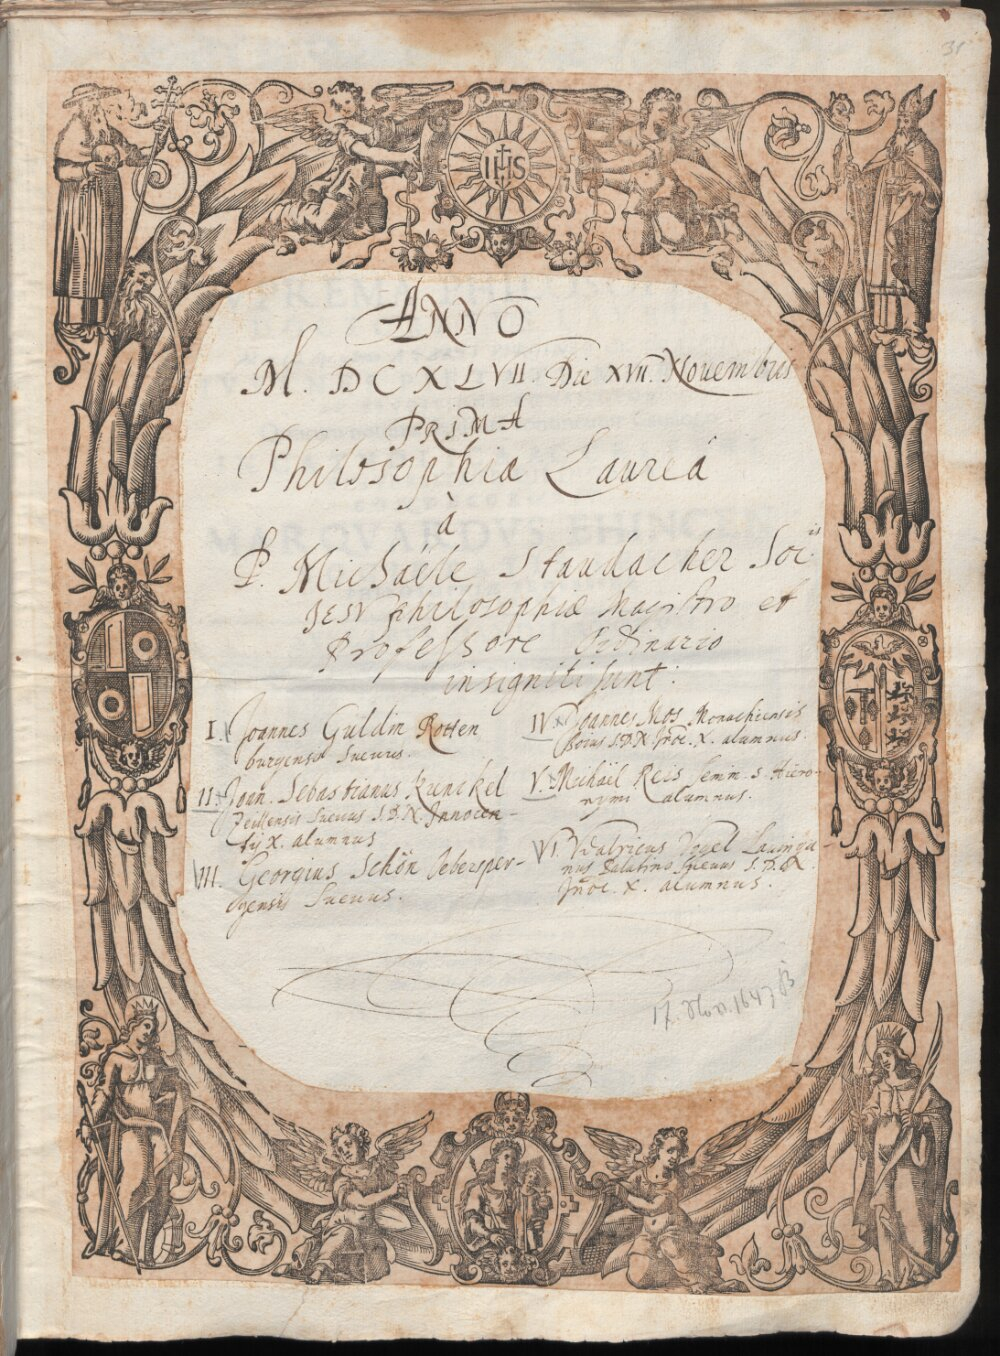 31
IHS
ANNO
M. DCXLVII. Die XVII. Novembris
PRIMA
Philosophiæ Laureâ
à
P. Michaële Staudacher Soc.is
JESV Philosophiæ Magistro et
Professore Ordinario
insigniti sunt.
I. Joannes Guldin Rotten
burgensis Suevus.
II. Joan. Sebastianus Kunckel
Zeillensis Suevus S.D.N. Innocen-
tij X. alumnus
III. Georgius Schön
gensis Suevus.
IV. Joannes Mos Monachiensis
Boius S.D.N. Inoc. X. alumnus.
V. Michäel Reis Sem. S. Hiero-
nymi alumnus.
VI. Vdalricus Vogel Lavinga
nus Palatino Suevus S.D.N.
Inoc. X. alumnus.
17. Nov. 1647